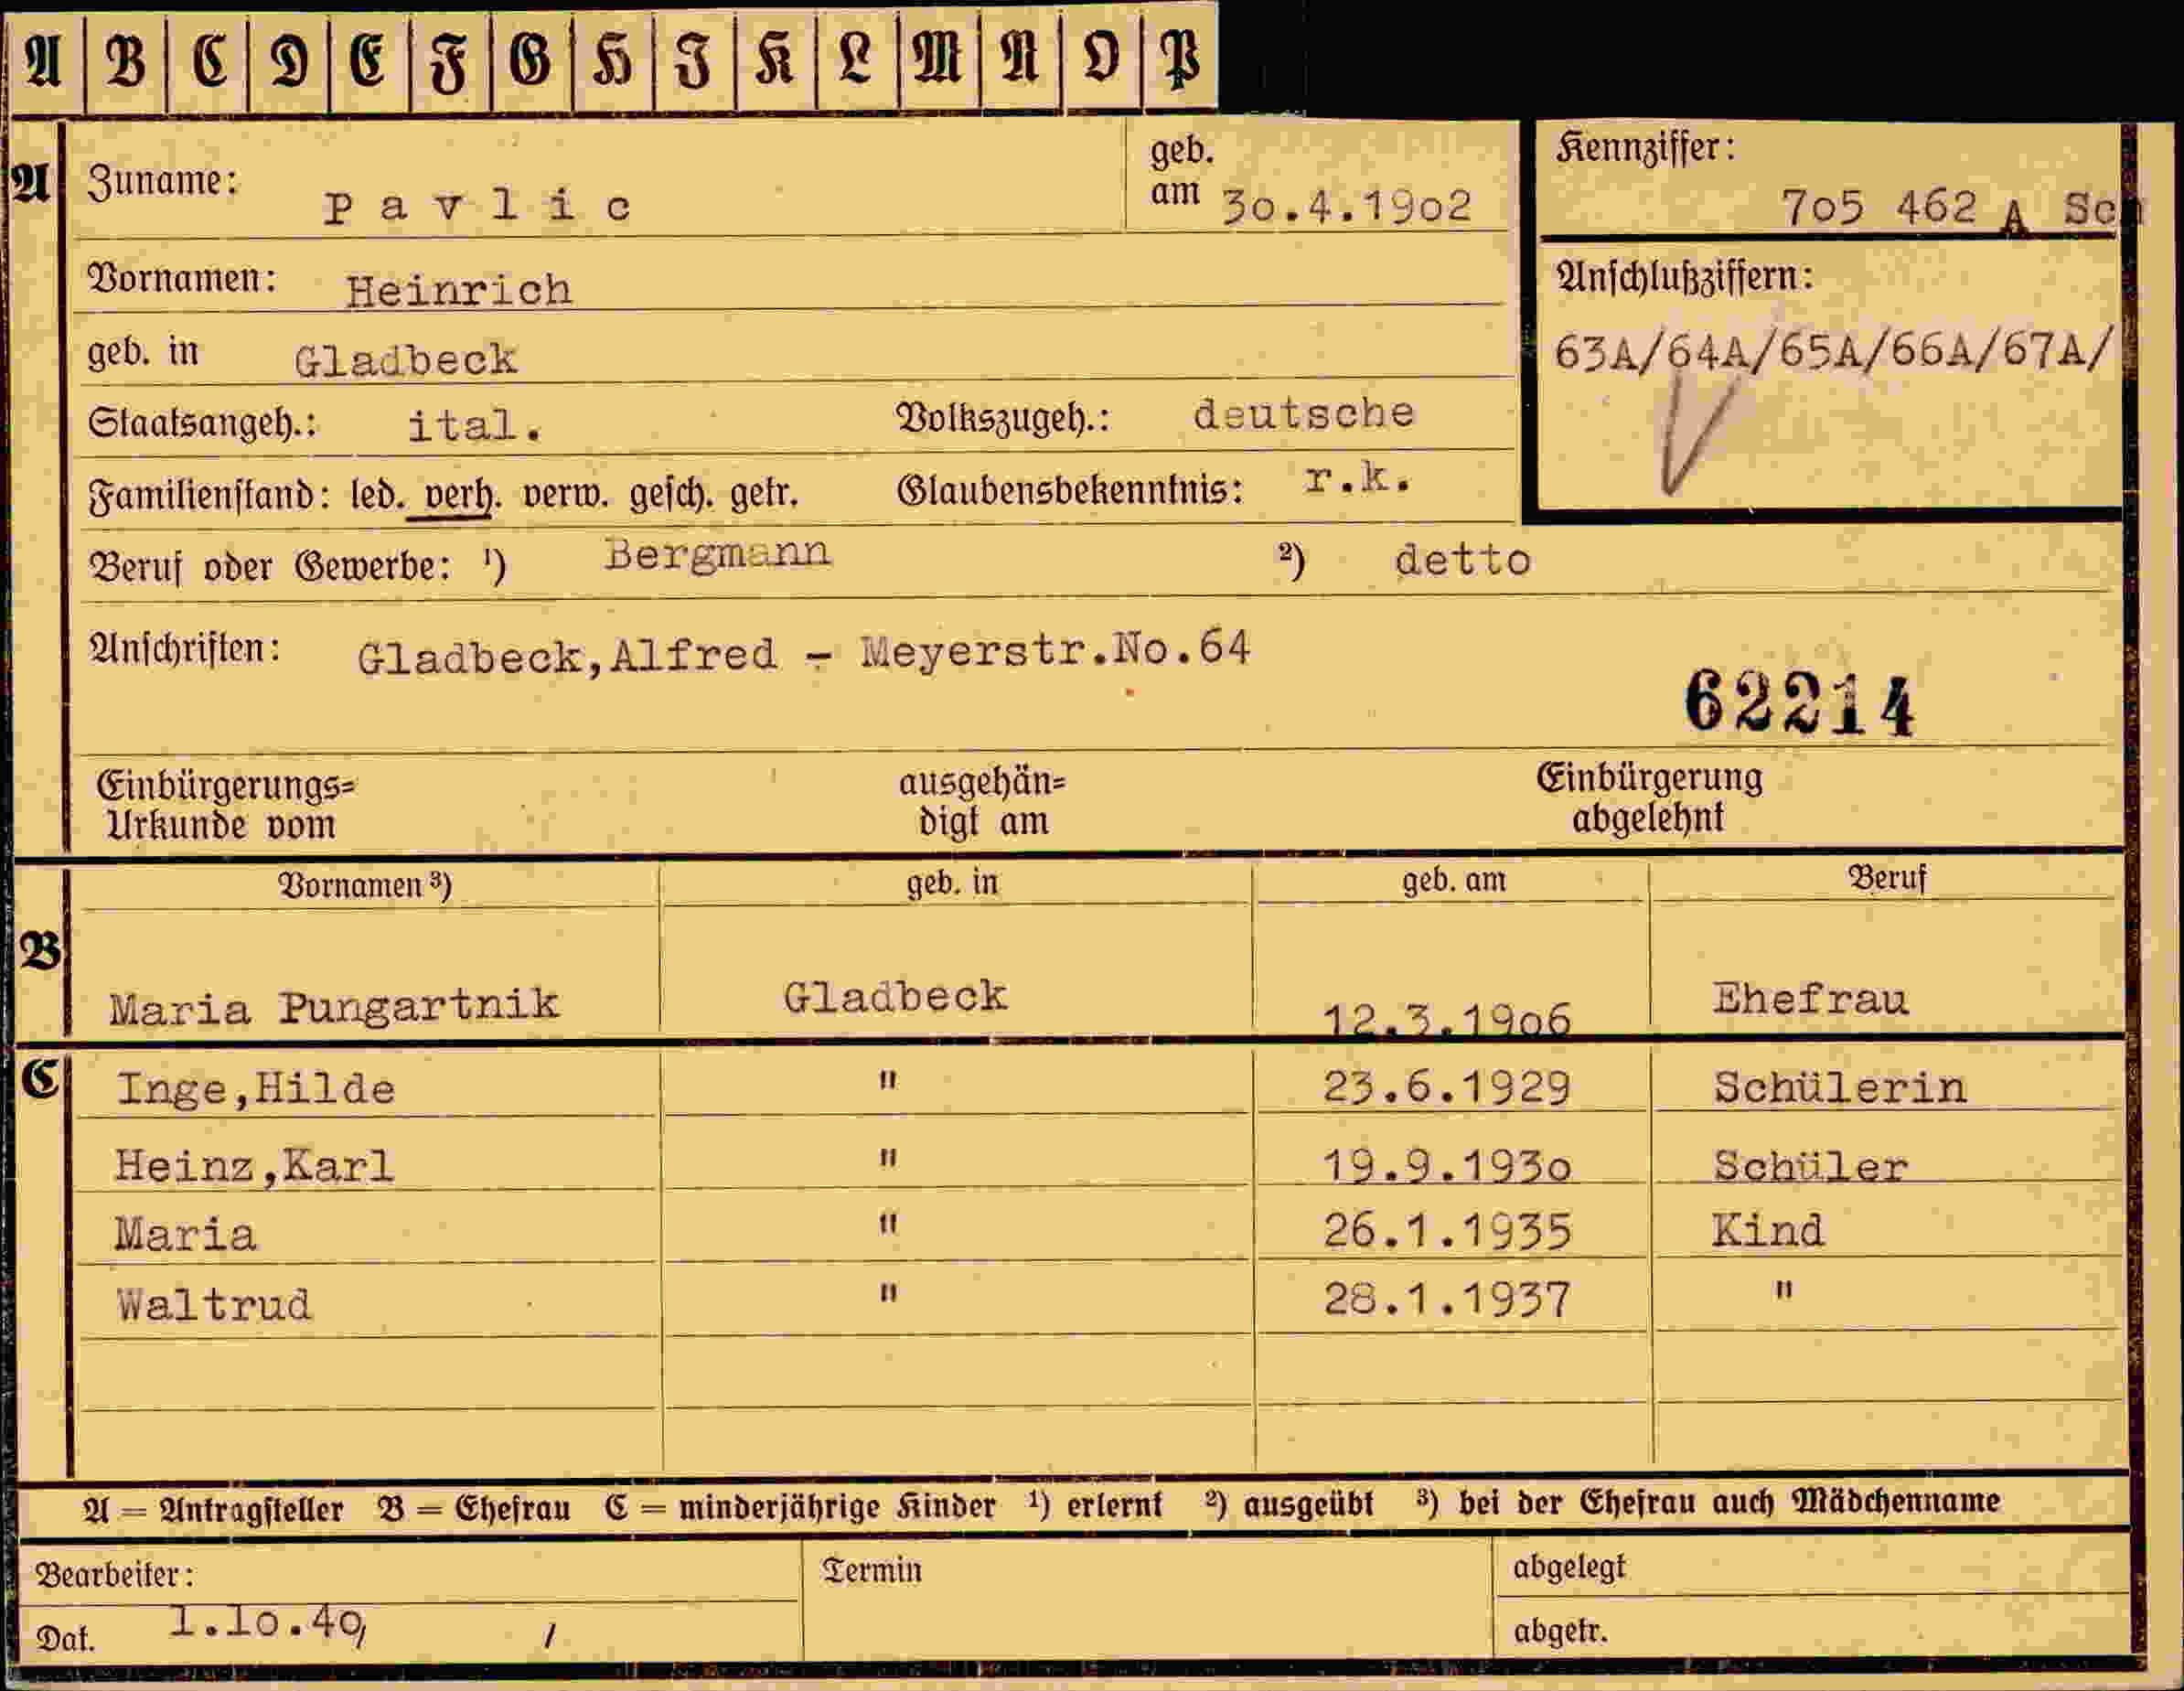 A B C D E F G H I K L M N O P
A Zuname: Pavlic geb. am 30.4.1902
Kennziffer: 705 462 A Sch
Vornamen: Heinrich
Anschlußziffern:
63A/64A/65A/66A/67A/
geb. in Gladbeck
Staatsangeh.: ital. Volkszugeh.: deutsche
Familienstand: led. verh. verw. gesch. getr. Glaubensbekenntnis: r.k.
Beruf oder Gewerbe: ¹) Bergmann ²) detto
Anschriften: Gladbeck,Alfred - Meyerstr.No.64
62214
Einbürgerungs= Urkunde vom
ausgehän= digt am
Einbürgerung abgelehnt
Vornamen ³) geb. in geb. am Beruf
B Maria Pungartnik Gladbeck 12.3.1906 Ehefrau
C Inge,Hilde " 23.6.1929 Schülerin
Heinz,Karl " 19.9.1930 Schüler
Maria " 26.1.1935 Kind
Waltrud " 28.1.1937 "
A = Antragsteller B = Ehefrau C = minderjährige Kinder ¹) erlernt ²) ausgeübt ³) bei der Ehefrau auch Mädchenname
Bearbeiter: Termin abgelegt
Dat. 1.10.40/ / abgetr.